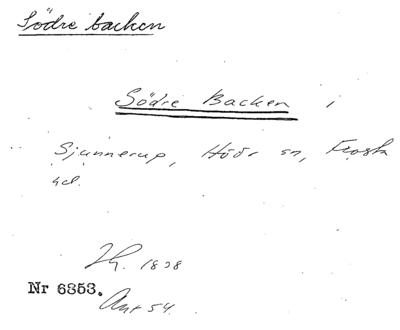 Södre backen
Södre Backen i
Sjunnerup, Höör sn, Frosta
hd.
1828
Nr 6353.
54.